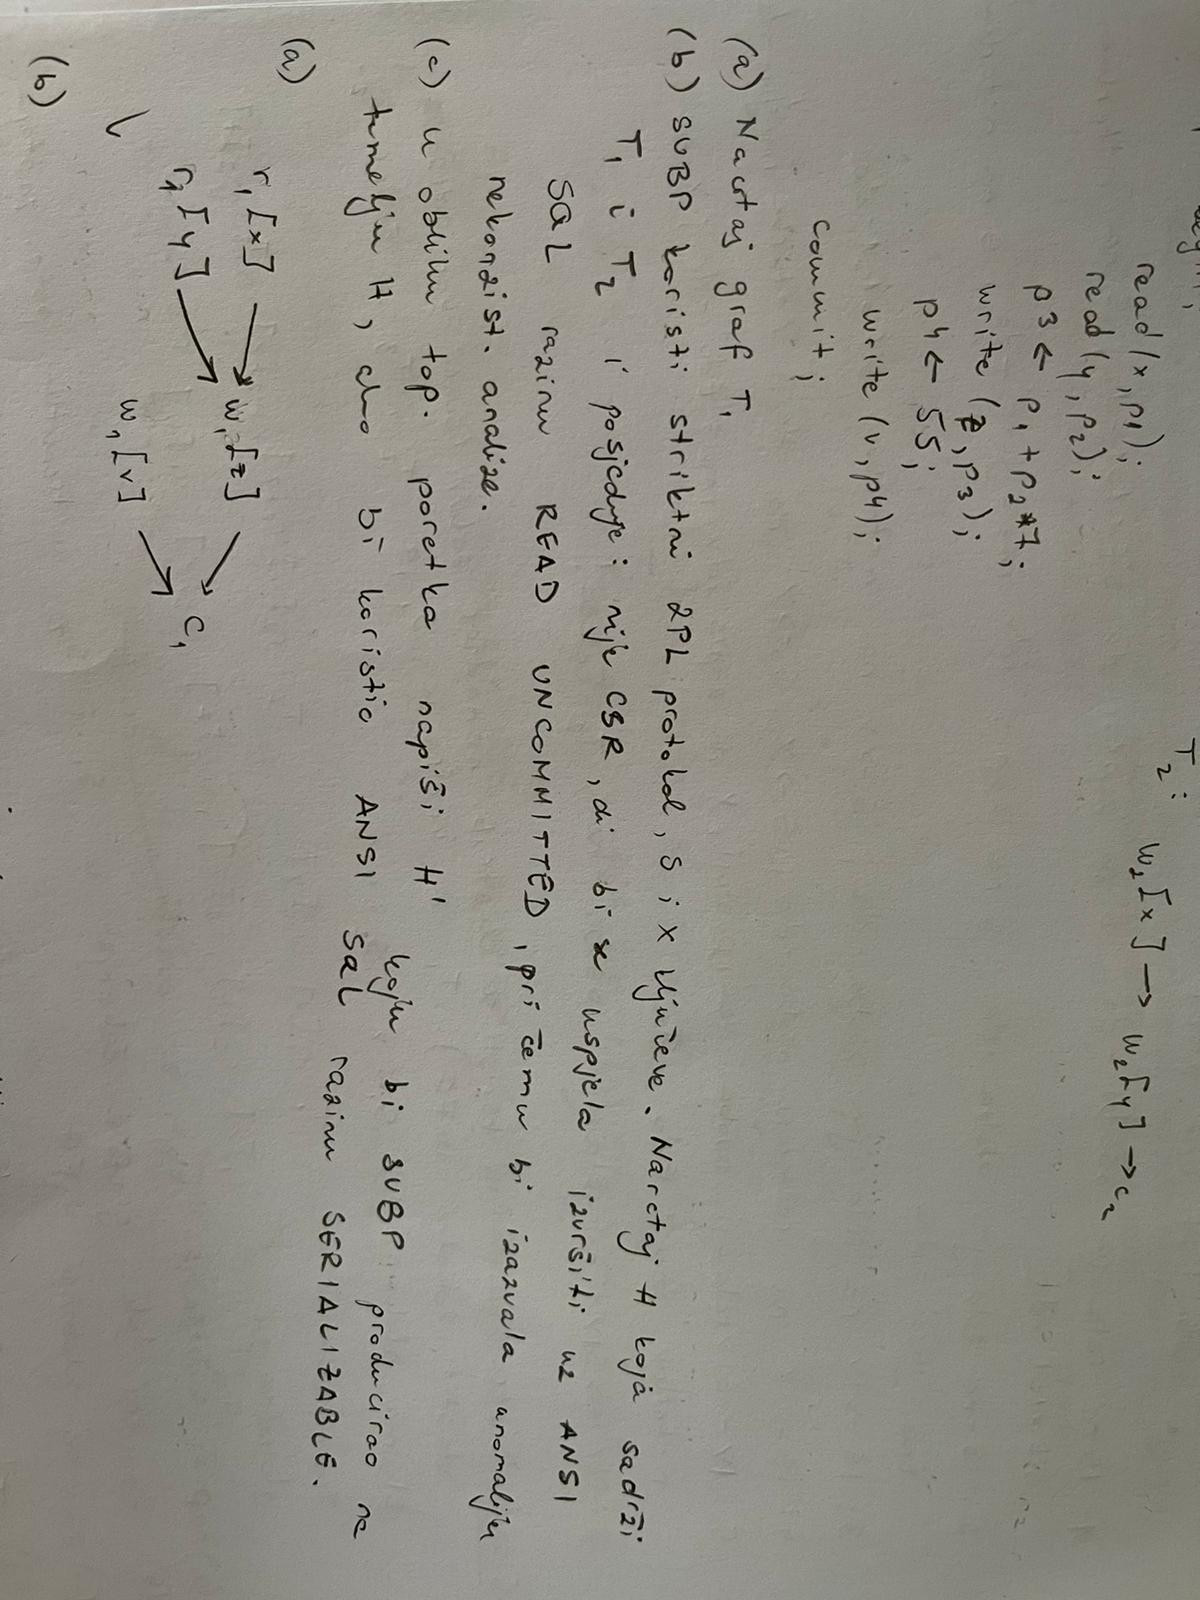 read(x, p1);
read(y, p2);
p3 ← p1 + p2 * 7;
write (z, p3);
p4 ← 55;
write (v, p4);
commit;
T2: w2[x] → w2[y] → c2
(a) Nacrtaj graf T1
(b) SUBP koristi striktni 2PL protokol, s i x ključeve. Narctaj H koja sadrži
T1 i T2 i posjeduje: nije CSR, ali bi se uspjela izvršiti uz ANSI
SQL razinu READ UNCOMMITTED, pri čemu bi izazvala anomaliju
nekonzist. analize.
(c) U obliku top. poretka napiši H' koju bi SUBP producirao na
temelju H, da bi koristio ANSI SQL razinu SERIALIZABLE.
(a) r1[x] → w1[z] → c1
r1[y]
w1[v]
(b)